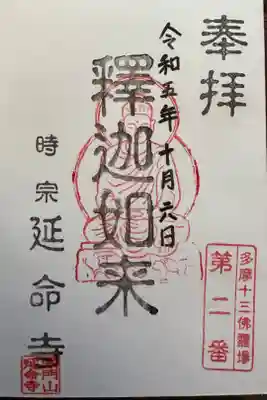 奉拝
多摩十三佛霊場
第二番
令和五年十月六日
釋迦如来
時宗
延命寺